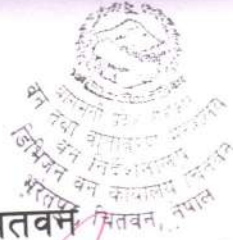 वन तथा वातावरण
वन निर्देशनालय
डिभिजन वन कार्यालय चितवन
भरतपुर चितवन, नेपाल
तवन